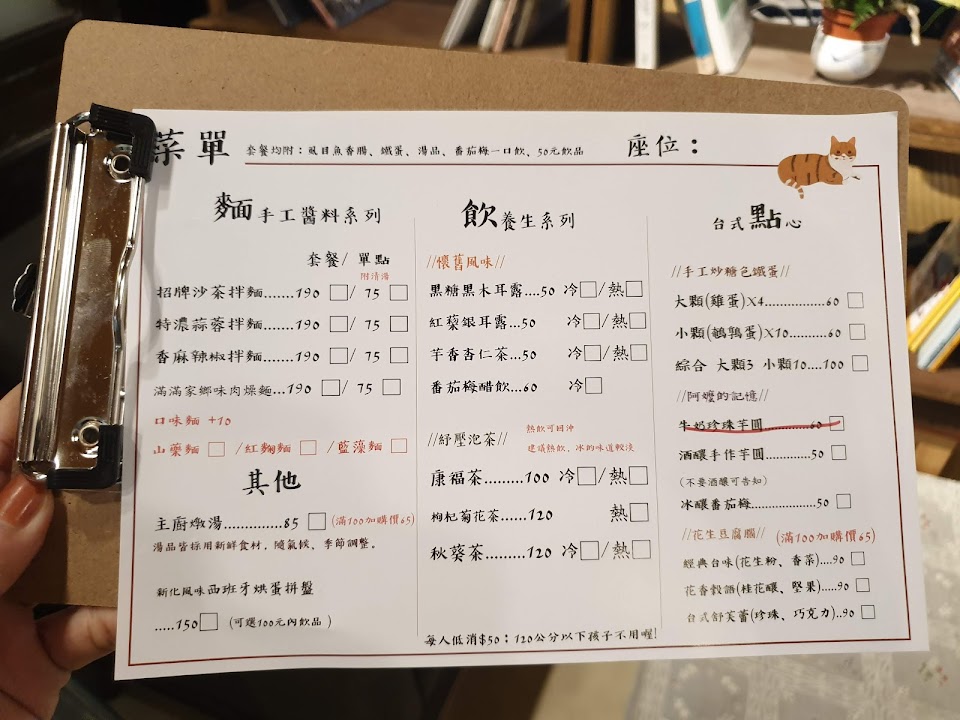 菜單 套餐均附：虱目魚香腸、鐵蛋、湯品、番茄梅一口飲、50元飲品 座位：
麵 手工醬料系列
套餐/ 單點
附清湯
招牌沙茶拌麵.......190 □/ 75 □
特濃蒜蓉拌麵.......190 □/ 75 □
香麻辣椒拌麵.......190 □/ 75 □
滿滿家鄉味肉燥麵...190 □/ 75 □
口味麵 +10
山藥麵 □/紅麴麵 □/藍藻麵 □
其他
主廚燉湯..............85 □(滿100加購價65)
湯品皆採用新鮮食材，隨氣候、季節調整。
新化風味西班牙烘蛋拼盤
.....150□ (可選100元內飲品)
飲 養生系列
//懷舊風味//
黑糖黑木耳露....50 冷□/熱□
紅藜銀耳露...50 冷□/熱□
芋香杏仁茶...50 冷□/熱□
番茄梅醋飲...60 冷□
//紓壓泡茶// 熱飲可回沖
建議熱飲，冰的味道較淡
康福茶.........100 冷□/熱□
枸杞菊花茶......120 熱□
秋葵茶.........120 冷□/熱□
每人低消$50；120公分以下孩子不用喔!
台式 點心
//手工炒糖色鐵蛋//
大顆(雞蛋)X4...............60 □
小顆(鵪鶉蛋)X10..........60 □
綜合 大顆3 小顆10....100 □
//阿嬤的記憶//
牛奶珍珠芋圓...........60 □
酒釀手作芋圓...........50 □
(不要酒釀可告知)
冰釀番茄梅.............50 □
//花生豆腐腦// (滿100加購價65)
經典台味(花生粉、香菜)....90 □
花香穀語(桂花釀、堅果).....90 □
台式舒芙蕾(珍珠、巧克力)..90 □